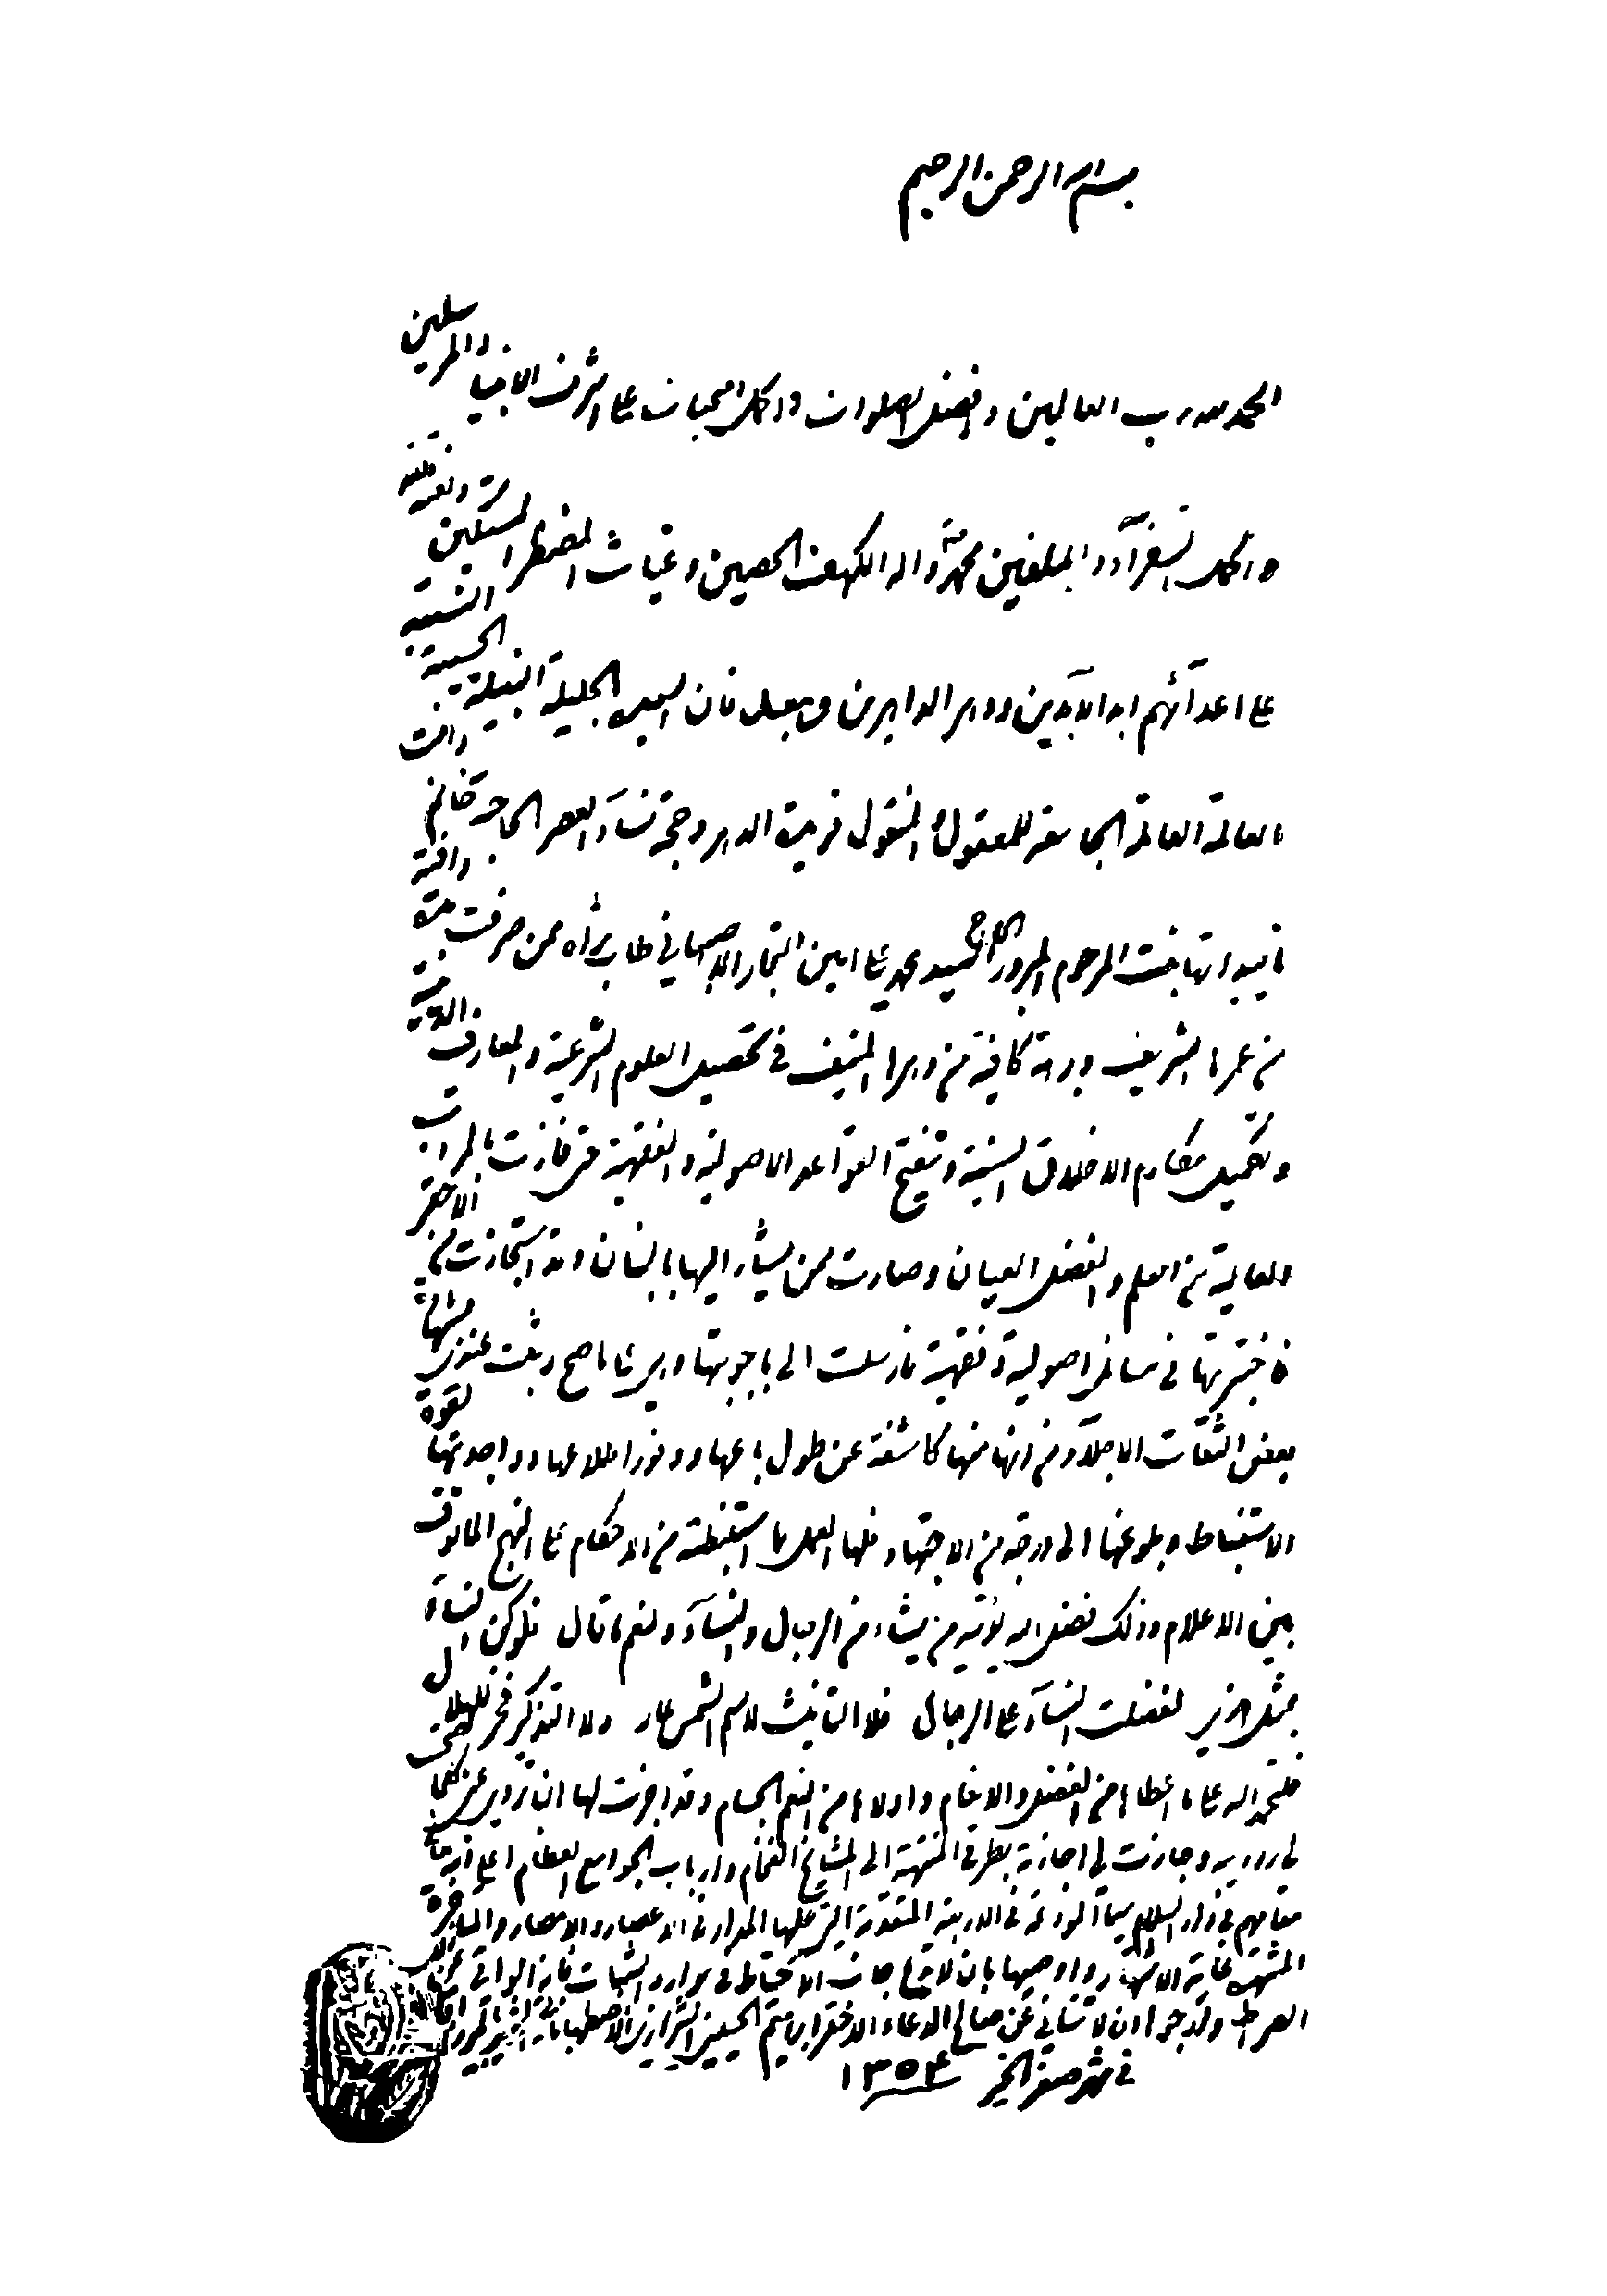 بسم الله الرحمن الرحيم
الحمد لله رب العالمين وافضل الصلوات واكمل التحيات على اشرف الانبياء والمرسلين
واكمل السفرآء المبلغين محمد وآله الكهف الحصين وغياث المضطر المستكين
على اعدآئهم ابد الآبدين ودهر الداهرين وبعد فان السيدة الجليلة النبيلة الحسيبة النسيبة
العالمة العاملة الجامعة للمعقول والمنقول فريدة الدهر وحجة نسآء العصر الحاجة خانم دامت
تاييداتها بنت المرحوم المبرور الحاج السيد محمد على امين التجار الاصبهاني طاب ثراه ممن صرفت مدة وافية
من عمرها الشريف وبرهة كافية من دهرها المنيف في تحصيل العلوم الشرعية والمعارف الدينية
وتكميل مكارم الاخلاق السنية وتنقيح القواعد الاصولية والفقهية حتى فازت بالمراتب
العالية من العلم والفضل العيان وصارت ممن يشار اليها بالبنان وقد استجازت من الاحقر
فاختبرتها في مسائل اصولية وفقهية فارسلت الى باجوبتها وهي على ما صح وثبت عندي بشهادة
بعض الثقات الاجلآء من انها منها كاشفة عن طول باعها ووفور اطلاعها وواجديتها لقوة
الاستنباط وبلوغها الى درجة من الاجتهاد فلها العمل بما استنبطته من الاحكام على النهج المألوف
بين الاعلام وذلك فضل الله يؤتيه من يشاء من الرجال والنسآء ولنعم ما قال فلو كن النسآء
بمثل هذي لفضلت النسآء على الرجال فلا التأنيث لاسم الشمس عار ولا التذكير فخر للهلال
فلتحمد الله على ما اعطاها من الفضل والانعام واولاها من النعم الجسام وقد اجزت لها ان تروي عني كلما صحت
لي روايته وجازت لي اجازته بطرقي المنتهية الى المشايخ الفخام وارباب الجوامع العظام اعلى الله
مقامهم في دار السلام سيما المودعة في الاربعة المتقدمة التي عليها المدار في الاعصار والامصار والمتأخرة
المشتهرة غاية الاشتهار واوصيها بان لا تدع جانب الاحتياط في موارد الشبهات فانه الواقي عن
الصراط والمرجو منها ان لا تنساني عن صالح الدعاء الاحقر ابراهيم الحسيني الشيرازي الاصطهباناتي الشهير
في شهر صفر الخير ١٣٥٤